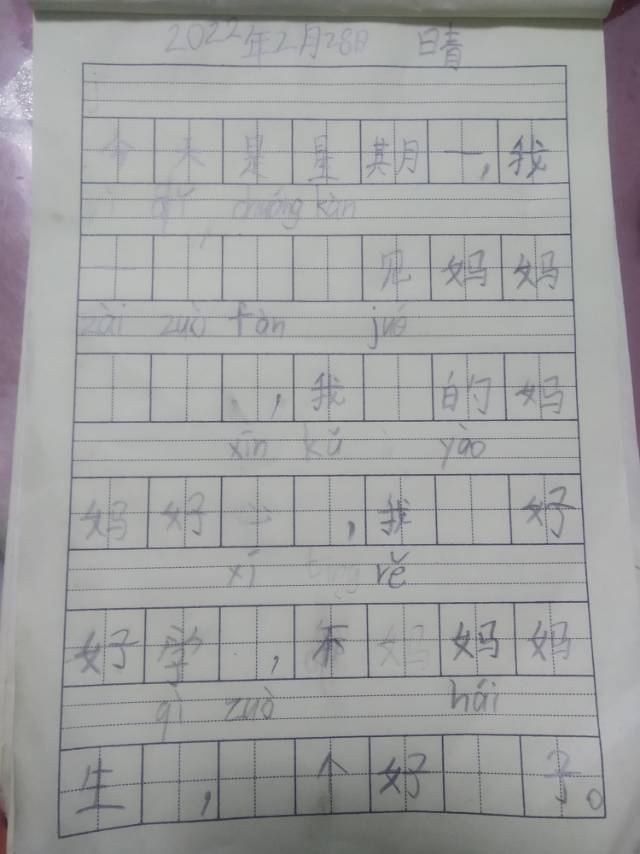 2022年2月28日 晴
今天是星期一,我
qǐ chuáng kàn
一 见妈妈
zài zuò fàn jué
,我 的妈
xīn kǔ yào
妈好 ,我 好
xí rě
好学 ,不 妈妈
qì zuò hái
生 , 个好 子。